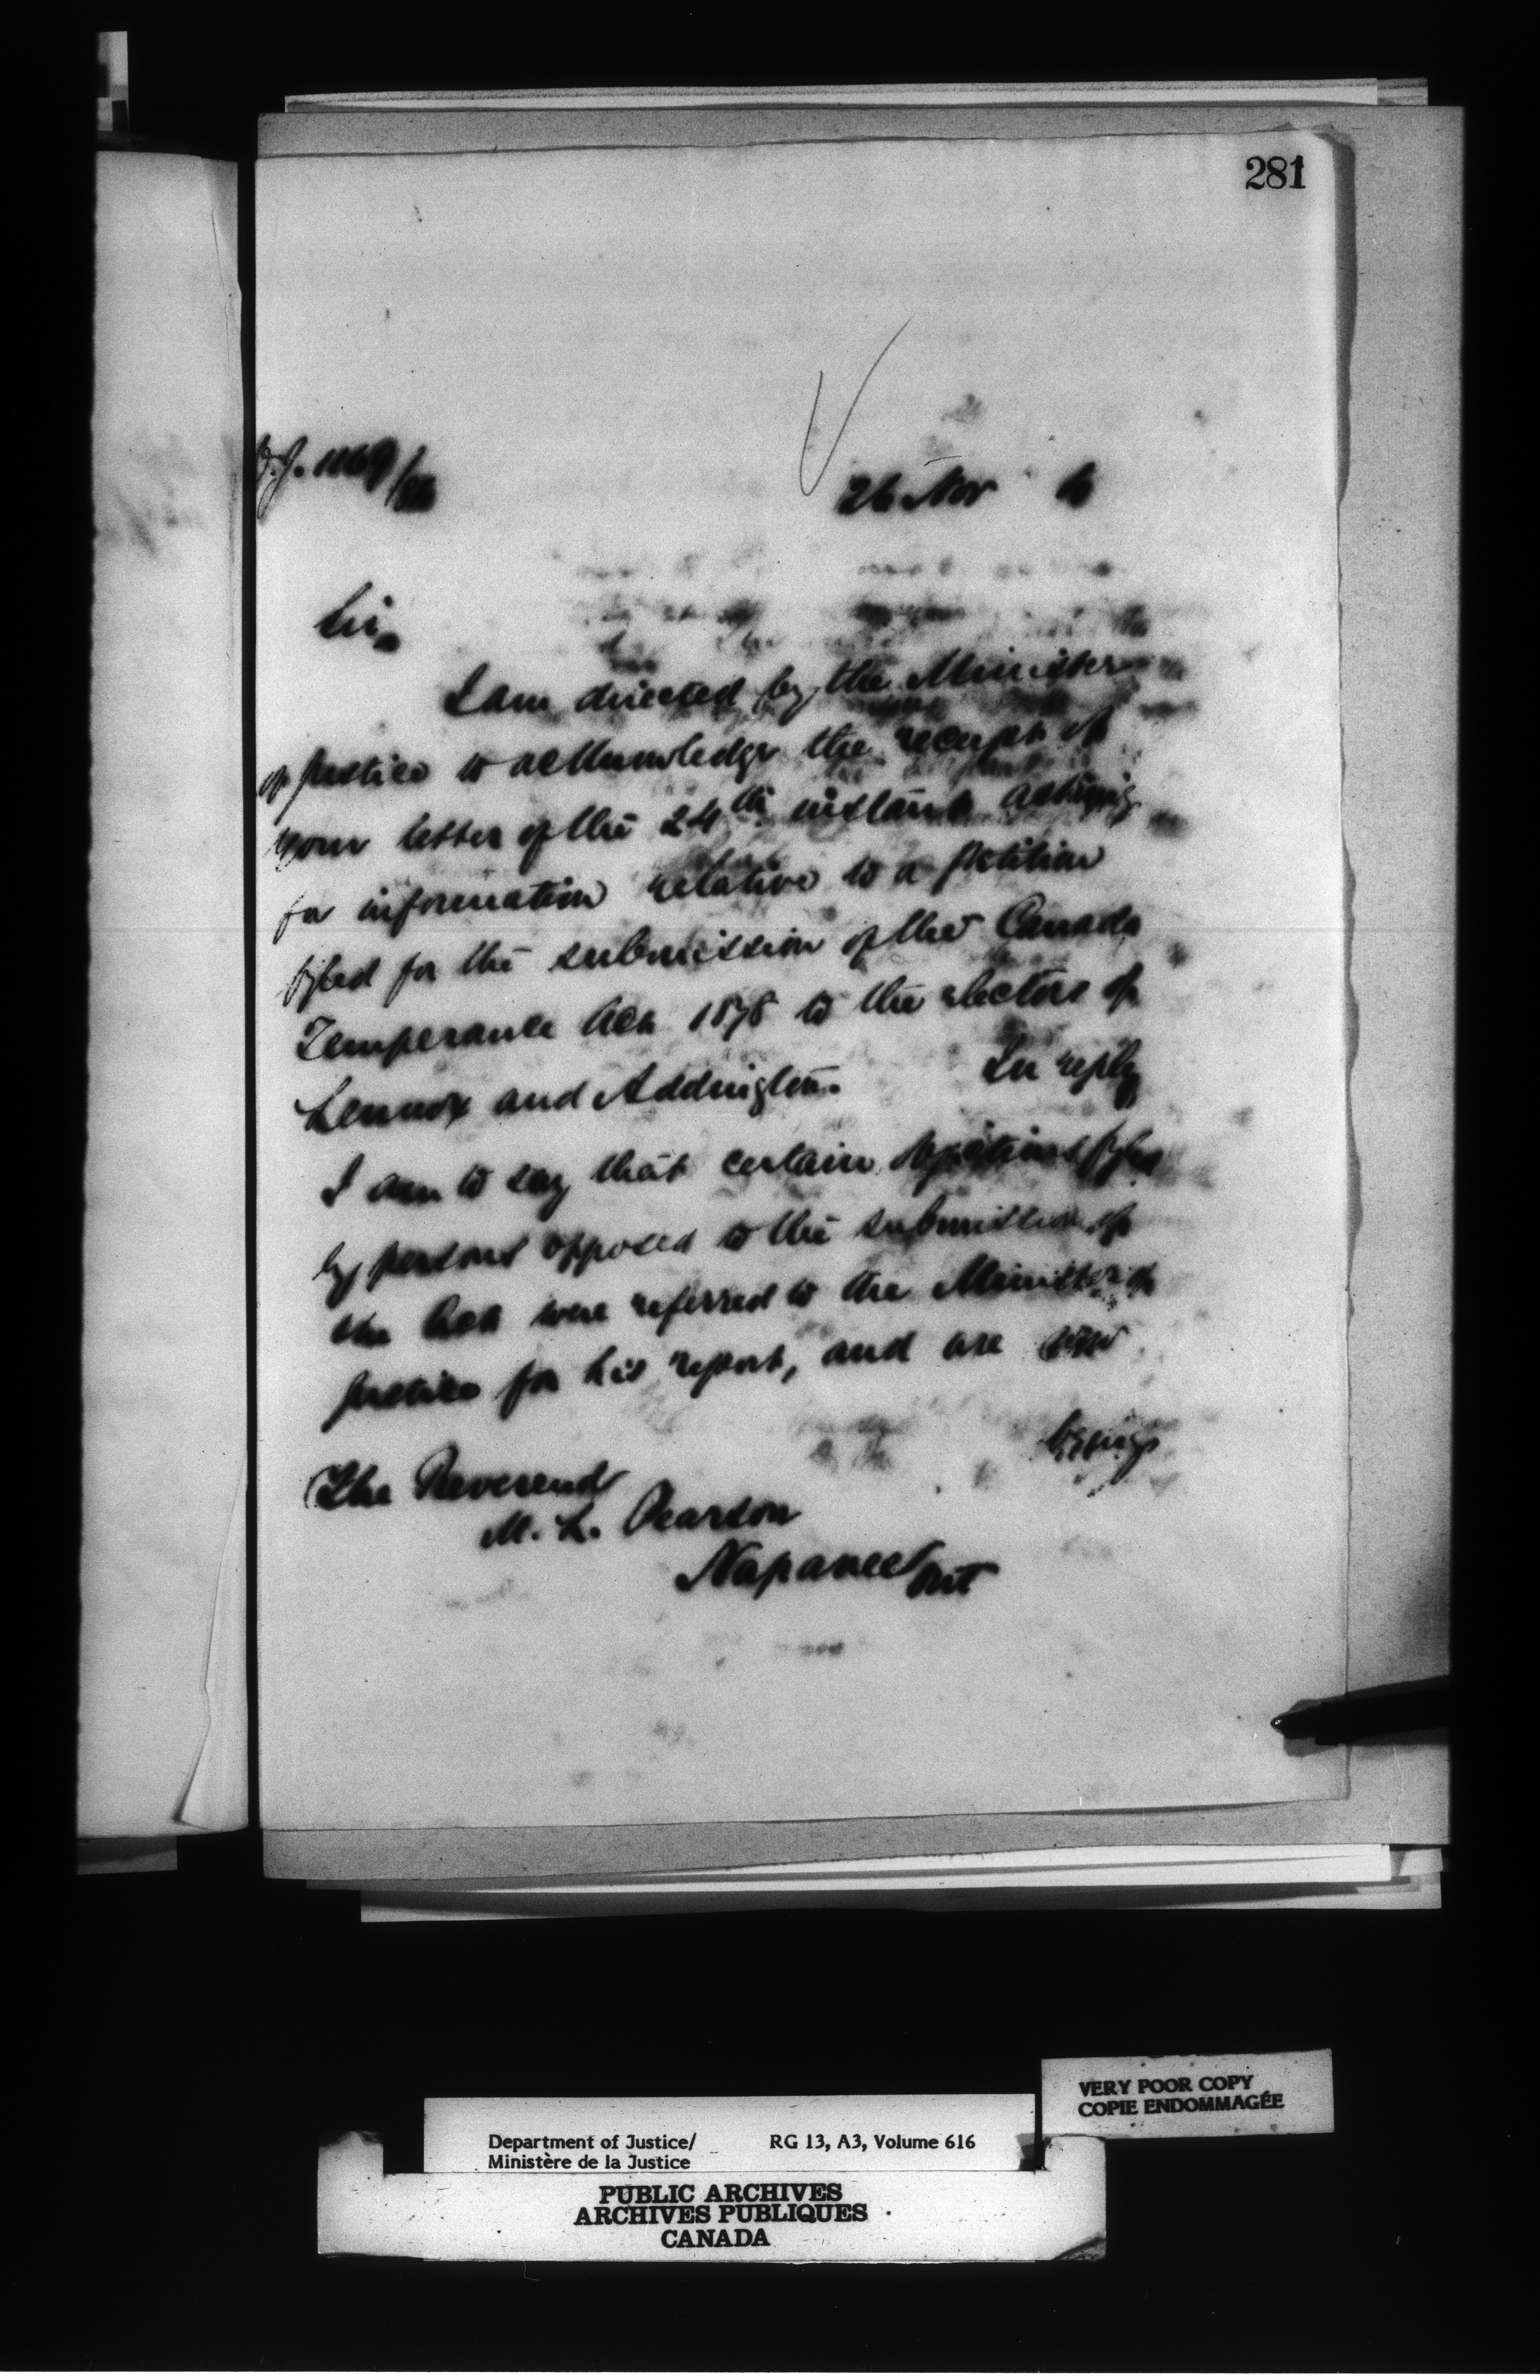 281
26 Nov 6
Sir,
I am directed by the Minister
of Justice to acknowledge the receipt of
your letter of the 24th instant asking
for information relative to a petition
fyled for the submission of the Canada
Temperance Act 1878 to the electors of
Lennox and Addington. In reply
I am to say that certain objections fyled
by persons opposed to the submission of
the Act were referred to the Minister of
Justice for his report, and are now
being
The Reverend
M. L. Pearson
Napanee Ont
VERY POOR COPY
COPIE ENDOMMAGÉE
Department of Justice/ RG 13, A3, Volume 616
Ministère de la Justice
PUBLIC ARCHIVES
ARCHIVES PUBLIQUES
CANADA